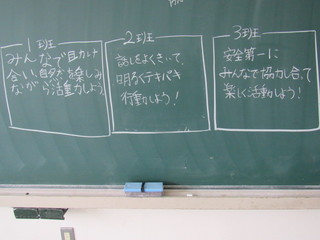 1班
みんなで助け
合い、自分も楽しみ
ながら活動しよう
2班
話しをよくきいて、
明るくテキパキ
行動しよう!
3班
安全第一に
みんなで協力し合って
楽しく活動しよう!